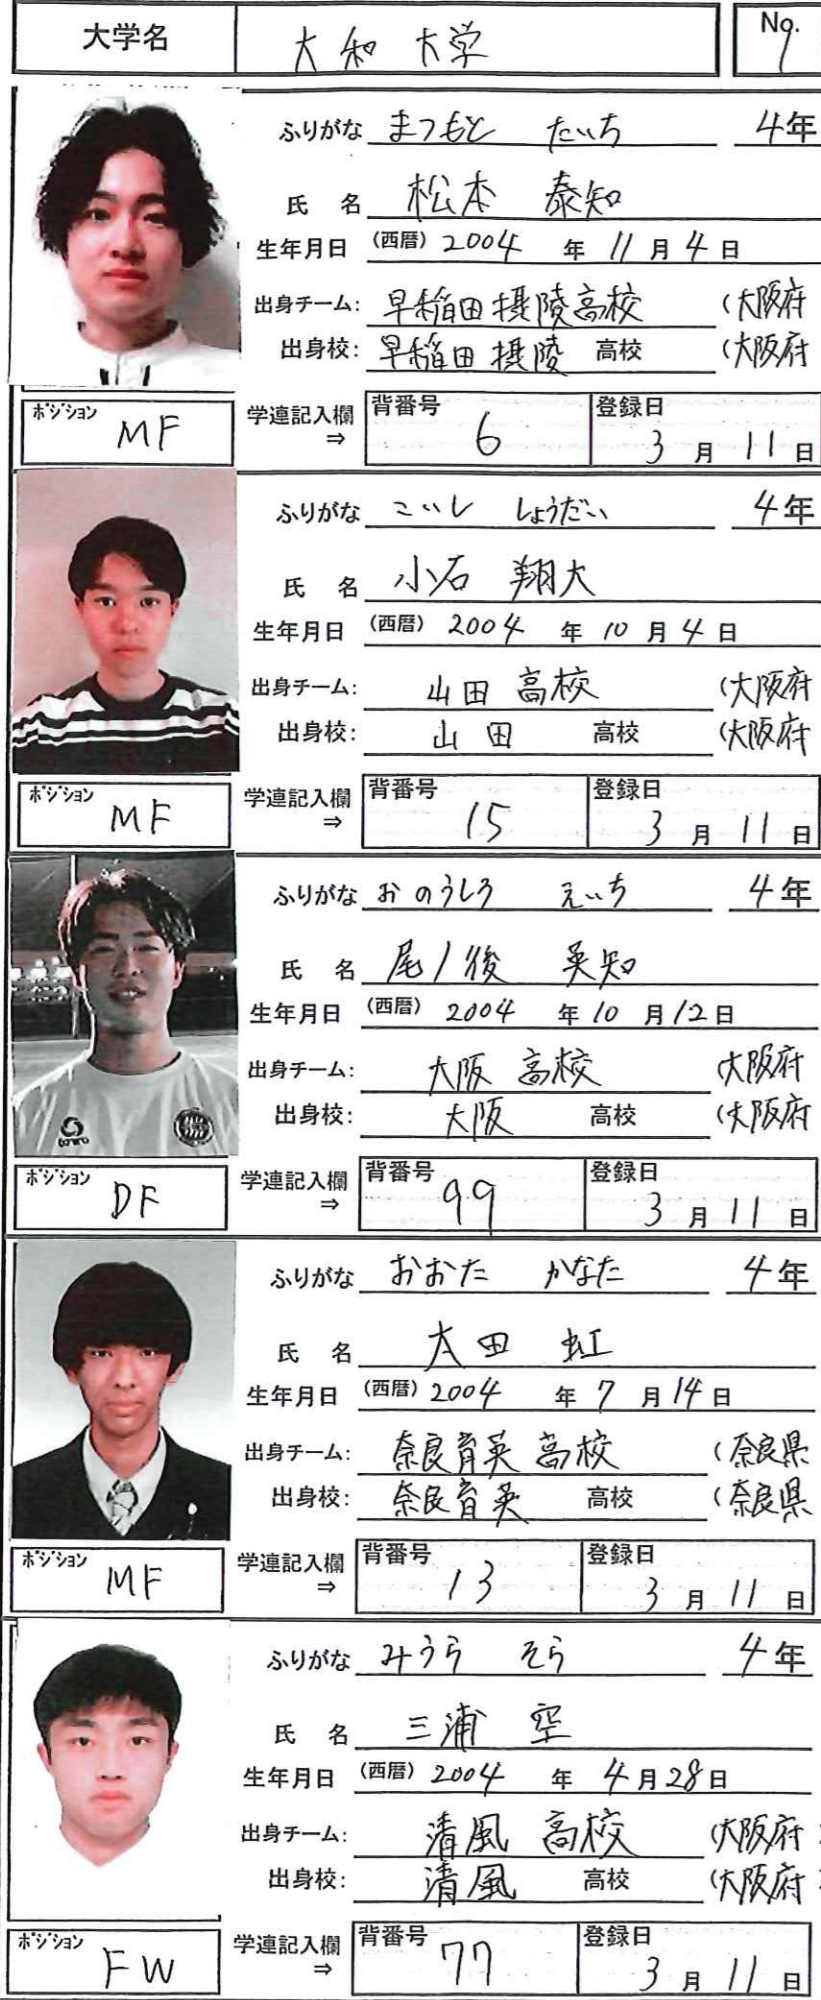 大学名 大和大学 No. 1
ふりがな まつもと たいち 4年
氏名 松本 泰知
生年月日 (西暦) 2004 年 11 月 4 日
出身チーム: 早稲田摂陵高校 (大阪府
出身校: 早稲田摂陵 高校 (大阪府
ポジション MF 学連記入欄 ⇒ 背番号 6 登録日 3 月 11 日
ふりがな こいし しょうだい 4年
氏名 小石 翔大
生年月日 (西暦) 2004 年 10 月 4 日
出身チーム: 山田高校 (大阪府
出身校: 山田 高校 (大阪府
ポジション MF 学連記入欄 ⇒ 背番号 15 登録日 3 月 11 日
ふりがな おのうしろ えいち 4年
氏名 尾ノ後 英知
生年月日 (西暦) 2004 年 10 月 12 日
出身チーム: 大阪高校 (大阪府
出身校: 大阪 高校 (大阪府
ポジション DF 学連記入欄 ⇒ 背番号 99 登録日 3 月 11 日
ふりがな おおた かなた 4年
氏名 太田 虹
生年月日 (西暦) 2004 年 7 月 14 日
出身チーム: 奈良育英高校 (奈良県
出身校: 奈良育英 高校 (奈良県
ポジション MF 学連記入欄 ⇒ 背番号 13 登録日 3 月 11 日
ふりがな みうら そら 4年
氏名 三浦 空
生年月日 (西暦) 2004 年 4 月 28 日
出身チーム: 清風高校 (大阪府
出身校: 清風 高校 (大阪府
ポジション FW 学連記入欄 ⇒ 背番号 77 登録日 3 月 11 日